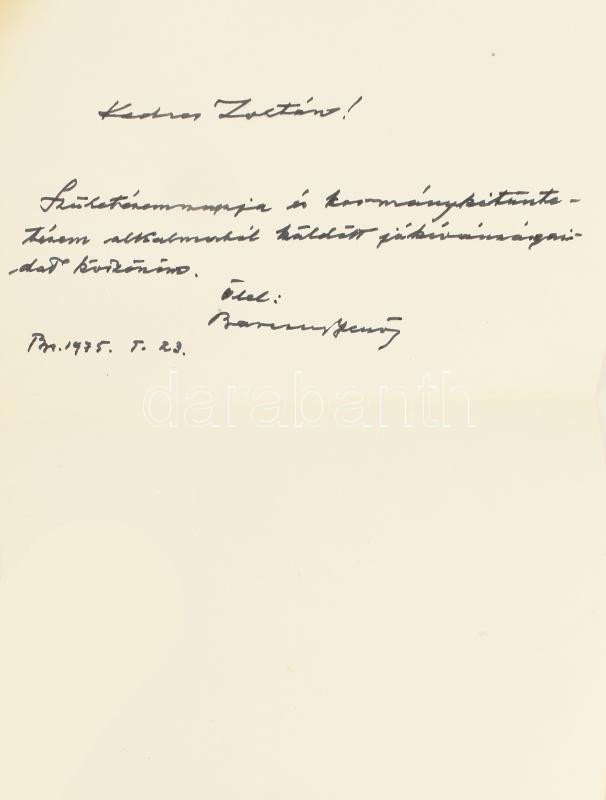 Kedves Zoltán!
Születésemnapja és kormánykitünte-
tésem alkalmából küldött jókívánságai-
dat köszönöm.
Ölel:
Barcsay Jenő
Bp. 1975. I. 23.
darabanth